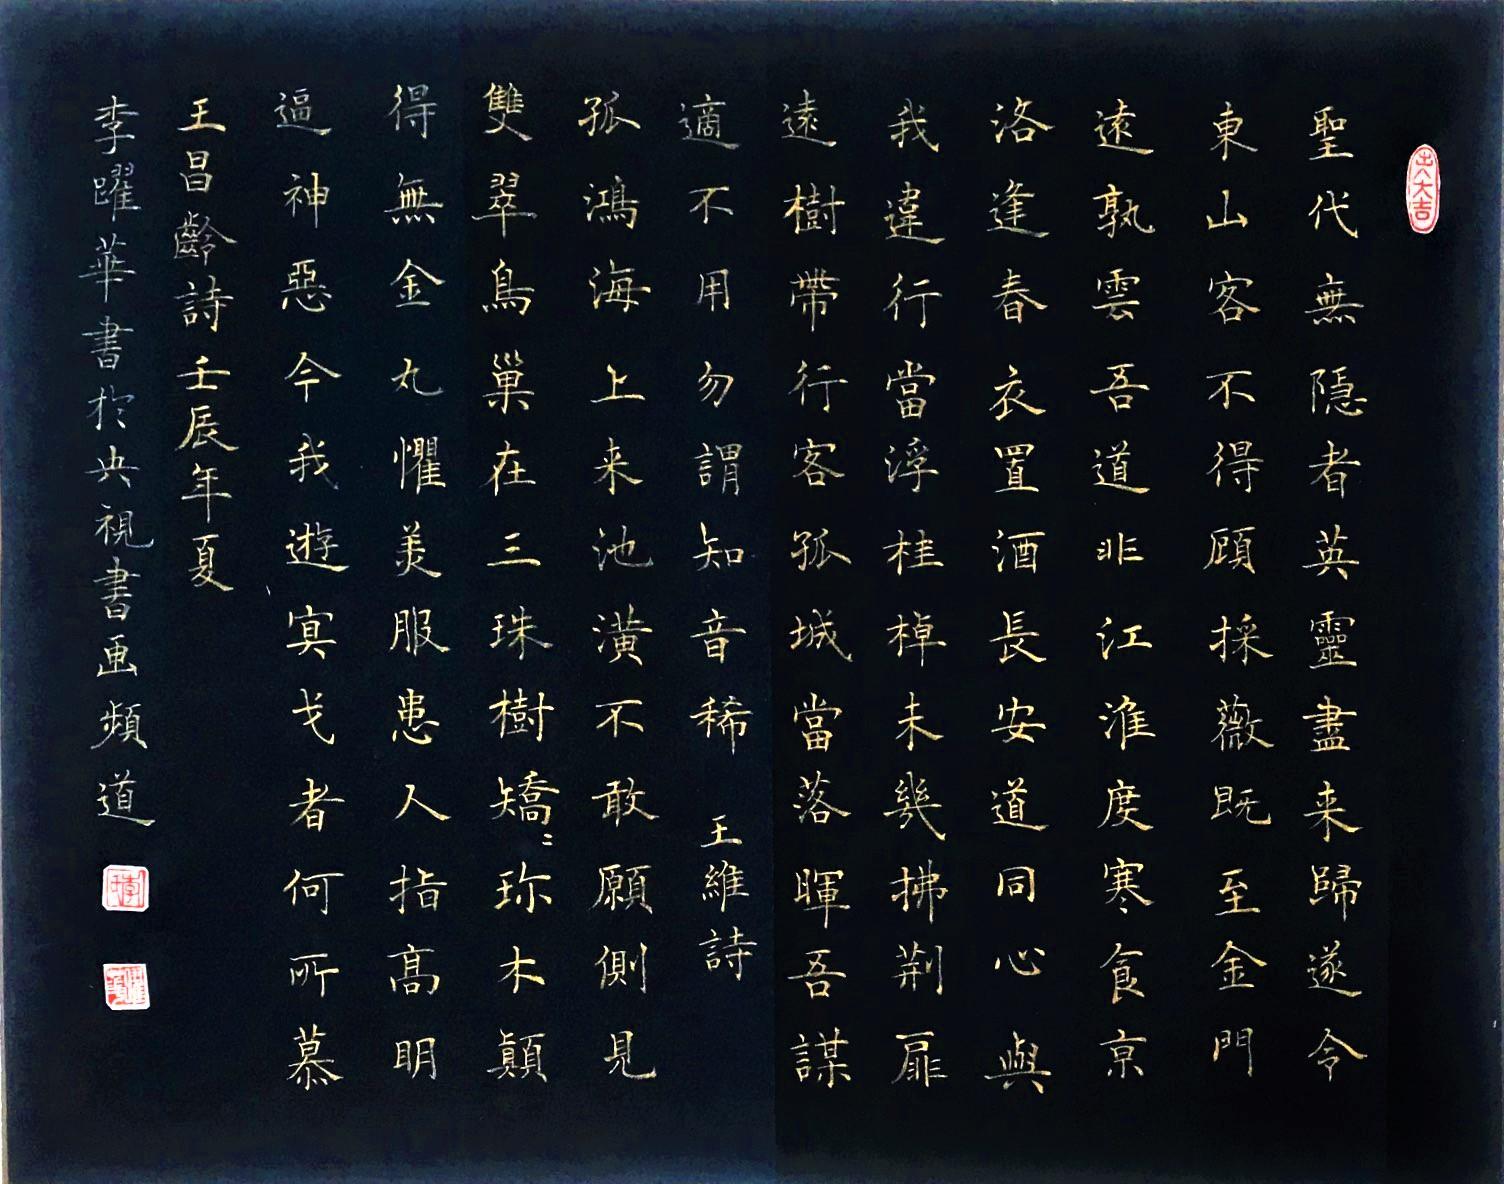 出入大吉
聖代無隱者英靈盡来歸遂令
東山客不得顧採薇既至金門
遠孰雲吾道非江淮度寒食京
洛逢春衣置酒長安道同心與
我違行當浮桂棹未幾拂荆扉
遠樹帶行客孤城當落暉吾謀
適不用勿謂知音稀 王維詩
孤鴻海上来池潢不敢願側見
雙翠鳥巢在三珠樹矯〻珎木顛
得無金丸懼美服患人指高明
逼神惡今我遊㝠弋者何所慕
王昌齡詩壬辰年夏
李躍華書於央視書画頻道